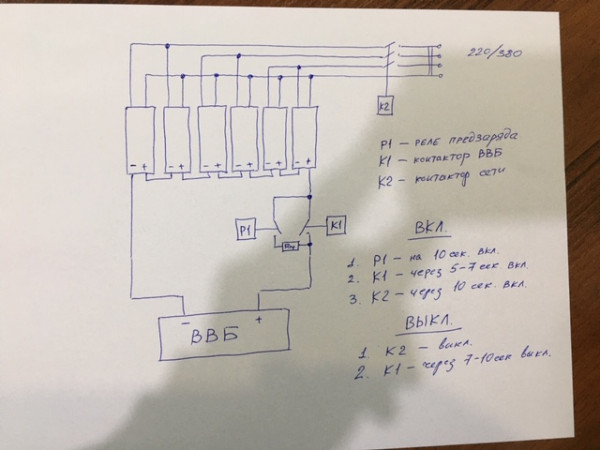 220/380
K2
P1 – РЕЛЕ ПРЕДЗАРЯДА
K1 – контактор ВВБ
K2 – контактор сети
- +
- +
- +
- +
- +
- +
P1
K1
ВКЛ.
1. P1 – на 10 сек. вкл.
2. K1 – через 5-7 сек вкл.
3. K2 – через 10 сек. вкл.
- +
ВВБ
ВЫКЛ.
1. K2 – выкл.
2. K1 – через 7-10 сек выкл.